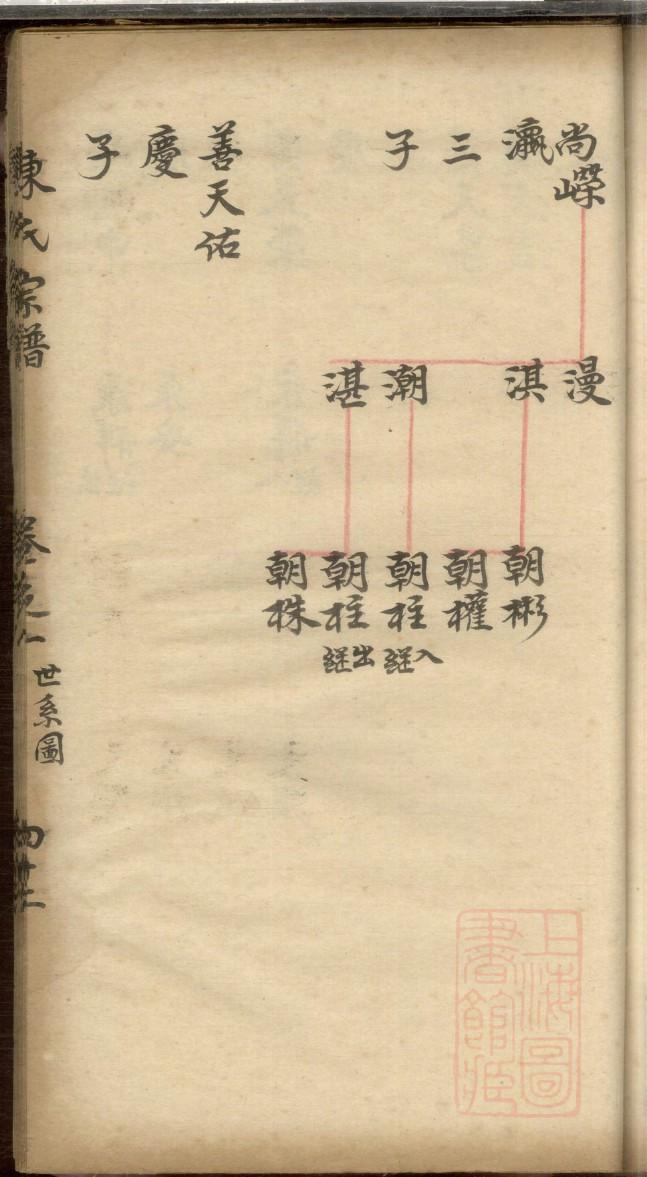 尚嶸
瀛
三
子
善天佑
慶
子
漫
淇
潮
湛
朝彬
朝權
朝柱
入繼
朝柱
出繼
朝株
陳氏宗譜
世系圖
上海圖
書館藏